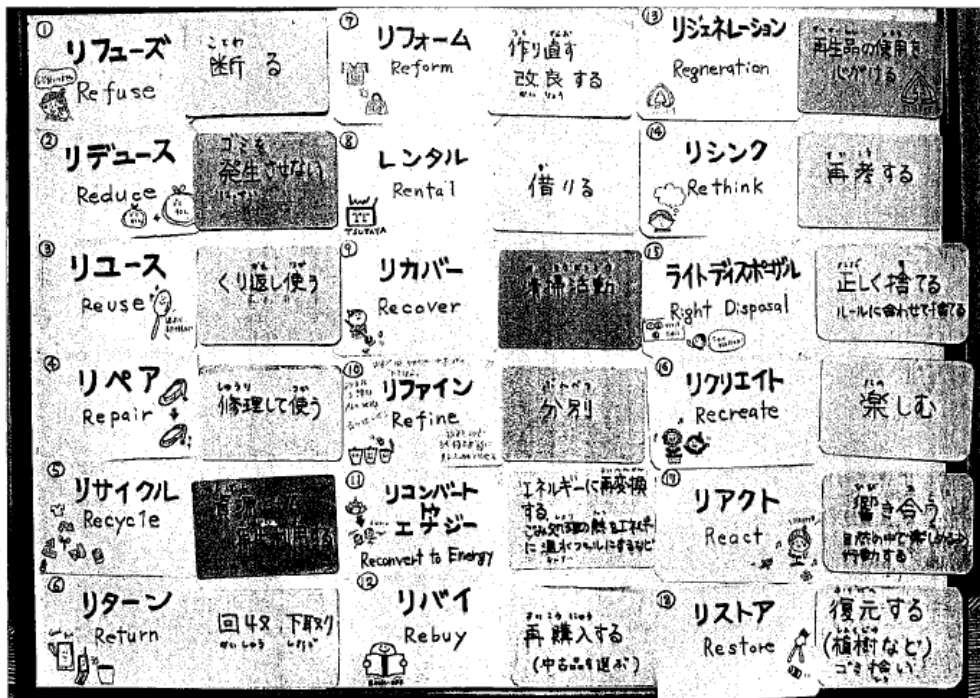 ①
リフューズ
Refuse
ことわ
断る
②
リデュース
Reduce
ゴミを
発生させない
③
リユース
Reuse
くり返し使う
④
リペア
Repair
しゅうり
修理して使う
⑤
リサイクル
Recycle
⑥
リターン
Return
回収、下取り
かいしゅう
⑦
リフォーム
Reform
作り直す
改良する
かいりょう
⑧
レンタル
Rental
TSUTAYA
借りる
⑨
リカバー
Recover
清掃活動
⑩
リファイン
Refine
ぶんべつ
分別
⑪
リコンバート
トゥ
エナジー
Reconvert to Energy
エネルギーに再変換
する
⑫
リバイ
Rebuy
BOOK・OFF
さいこうにゅう
再購入する
(中古品を選ぶ)
⑬
リジェネレーション
Regneration
再生品の使用を
心がける
⑭
リシンク
Rethink
さいこう
再考する
⑮
ライトディスポーザル
Right Disposal
正しく捨てる
ルールに合わせて捨てる
⑯
リクリエイト
Recreate
たの
楽しむ
⑰
リアクト
React
響き合う
自然の中で楽しめる
行動する
⑱
リストア
Restore
復元する
(植樹など)
ゴミ拾い